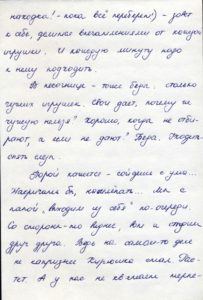 находка! - пока всё переберёт) - зовёт
к себе, делится впечатлениями от каждой
игрушки. И каждую минуту надо
к нему подходить.
В песочнице - тоже беда. столько
чужих игрушек. Свои даёт, почему же
чужую нельзя? Хорошо, когда не отби-
рают, а если не дают? Беда. Уходить
опять
Порой кажется - сойдёшь с ума...
бы,
папой, "выходим из себя" по-очереди.
Со стороны-то виднее, вот и
друг друга. Ведь на самом-то деле
не капризнее Кирюшка стал. Рас-
тёт. А у нас не хватает терпе-